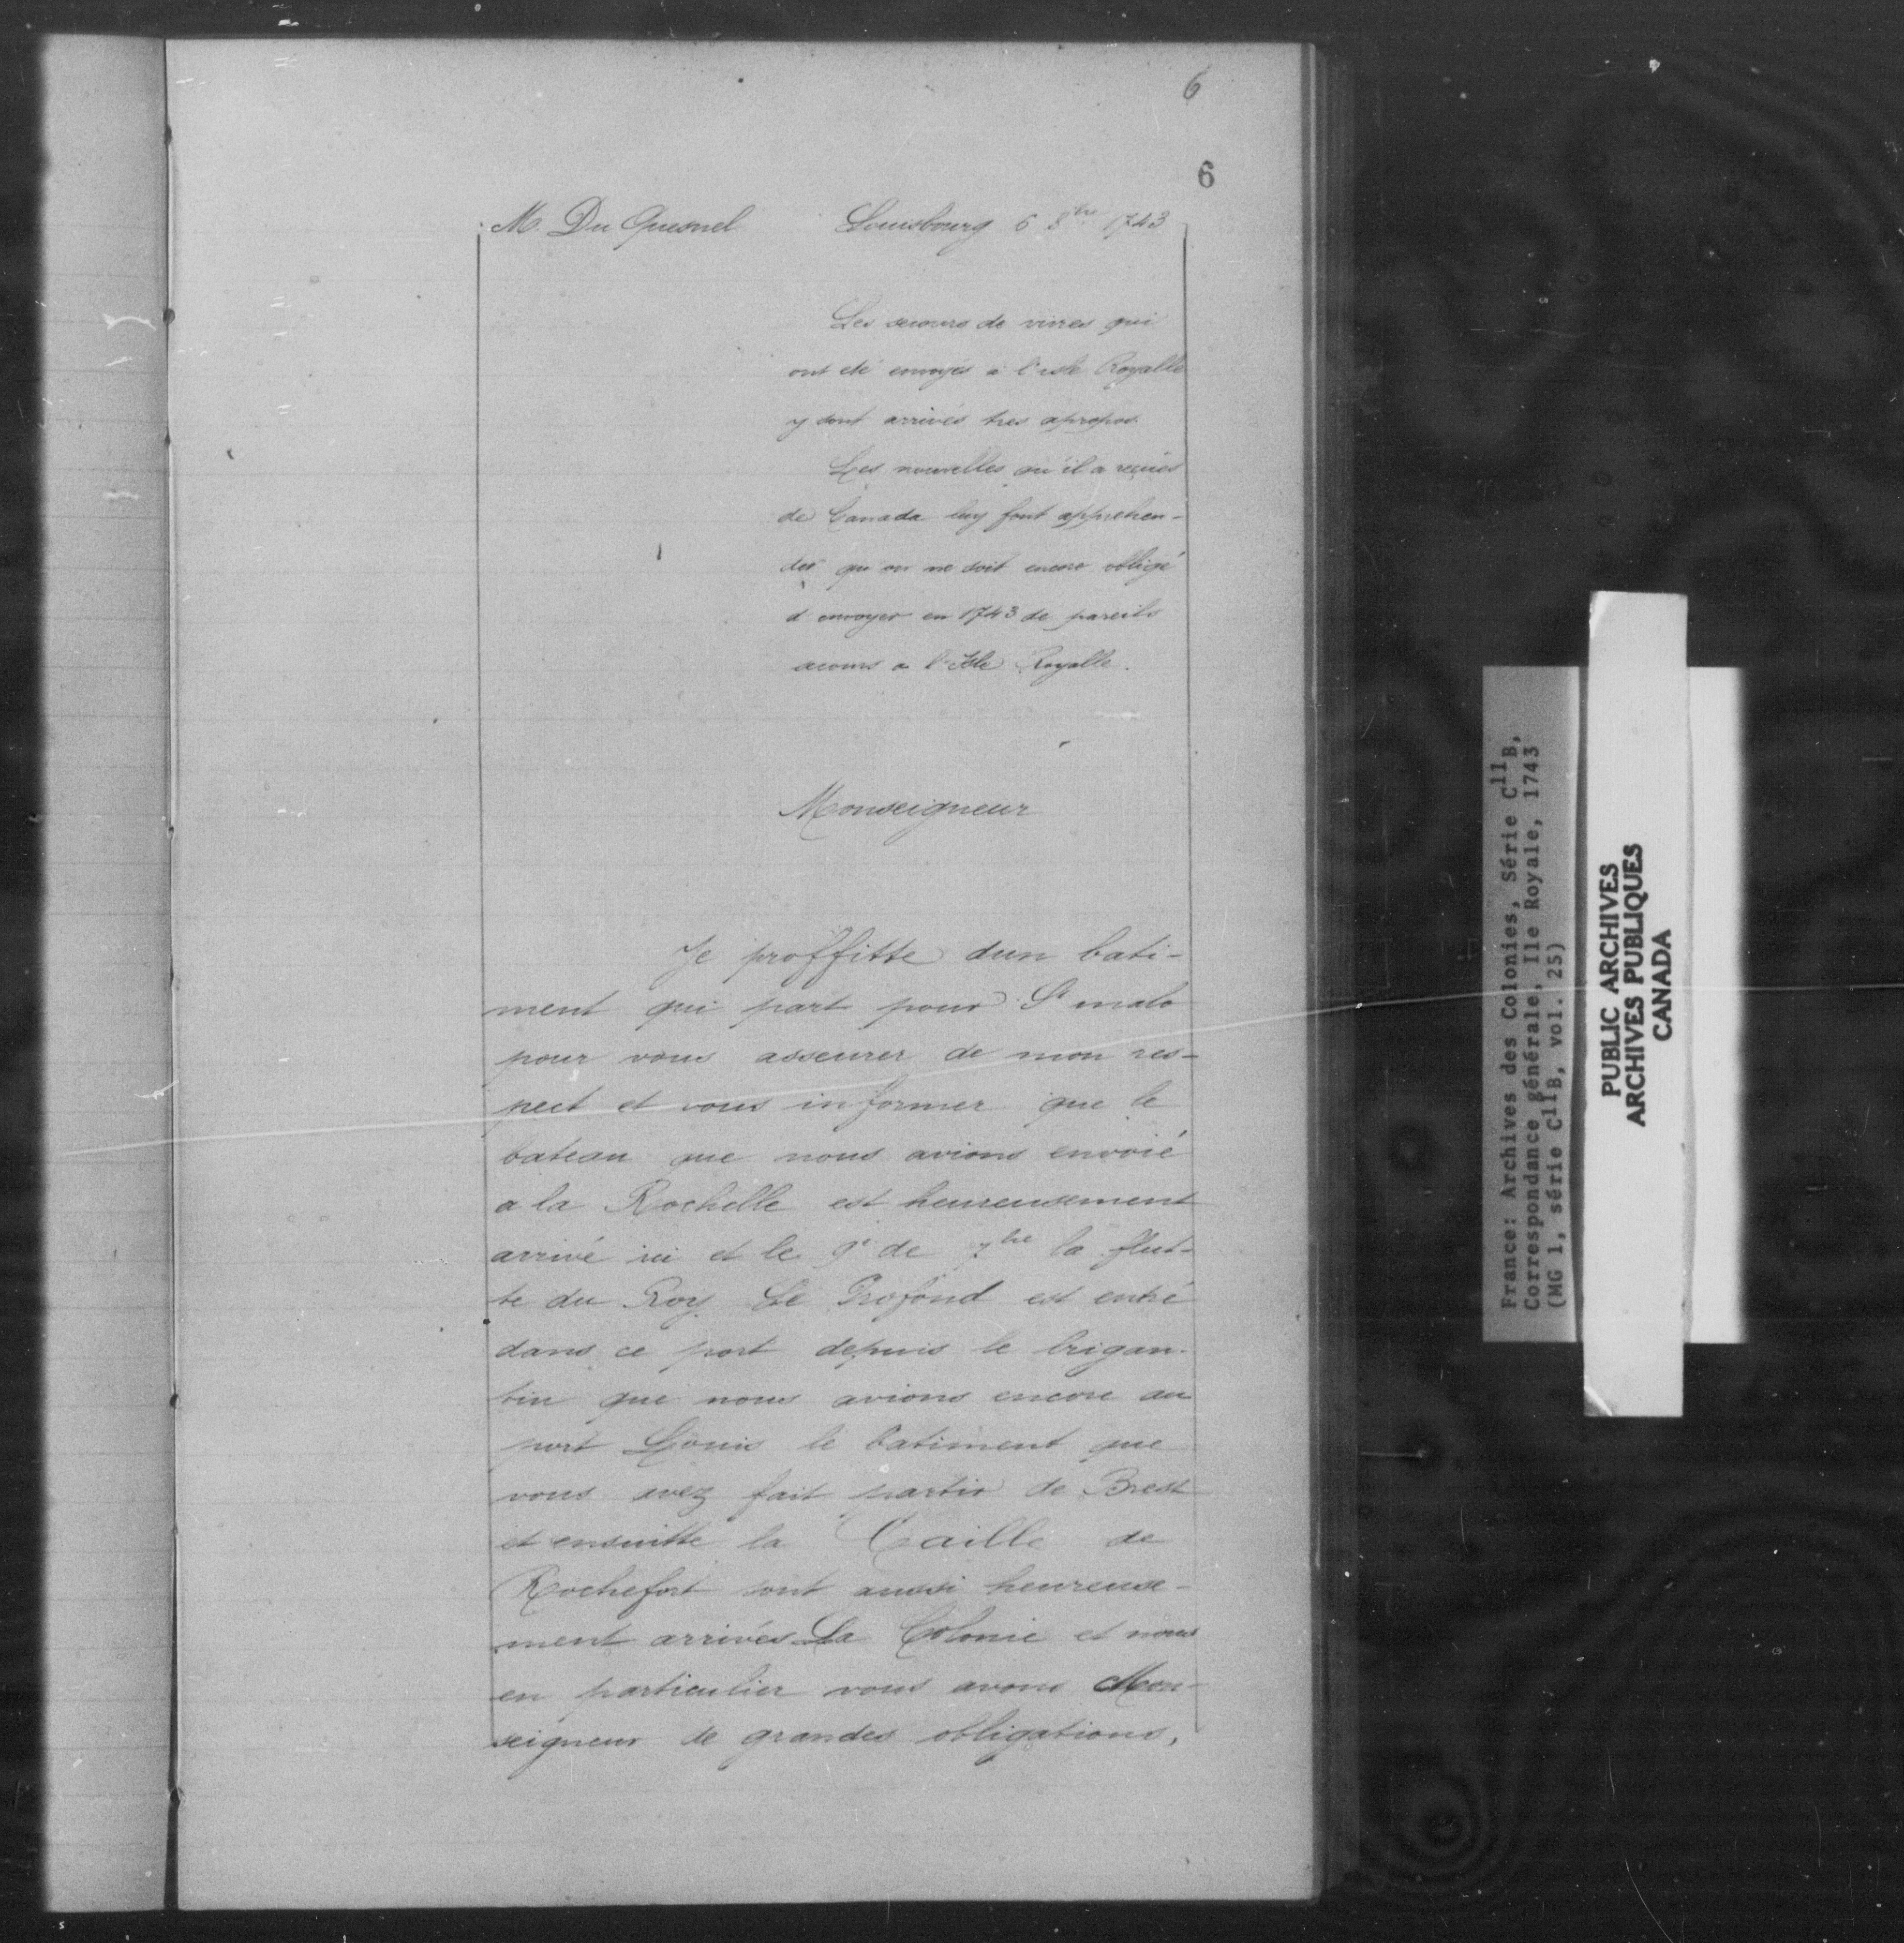 6
6
M. Du Quesnel Louisbourg 6 8bre 1743
Les secours de vivres qui
ont eté envoyés a l'isle Royalle
y sont arrivés tres apropos.
Les nouvelles qu'il a reçues
de Canada luy font apprehen-
der qu'on ne soit encore obligé
d'envoyer en 1743 de pareils
secours a l'Isle Royalle.
Monseigneur
Je proffitte dun bati-
ment qui part pour St malo
pour vous asseurer de mon res-
pect et vous informer que le
bateau que nous avions envoié
a la Rochelle est heureusement
arrivé ici et le 9e de 7bre la flut-
te du Roy Le Profond est entré
dans ce port depuis le brigan-
tin que nous avions encore au
port Louis le batiment que
vous avez fait partir de Brest
et ensuitte la Caille de
Rochefort sont aussi heureuse-
ment arrivés La Colonie et nous
en particulier vous avons Mon-
seigneur de grandes obligations,
France: Archives des Colonies, Série C11B,
Correspondance générale, Ile Royale, 1743
(MG 1, série C11B, vol. 25)
PUBLIC ARCHIVES
ARCHIVES PUBLIQUES
CANADA